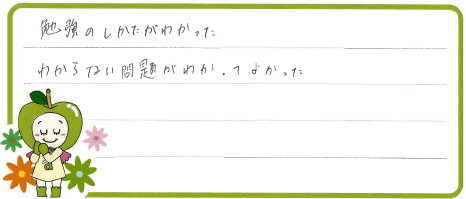 勉強のしかたがわかった
わからない問題がわかってよかった